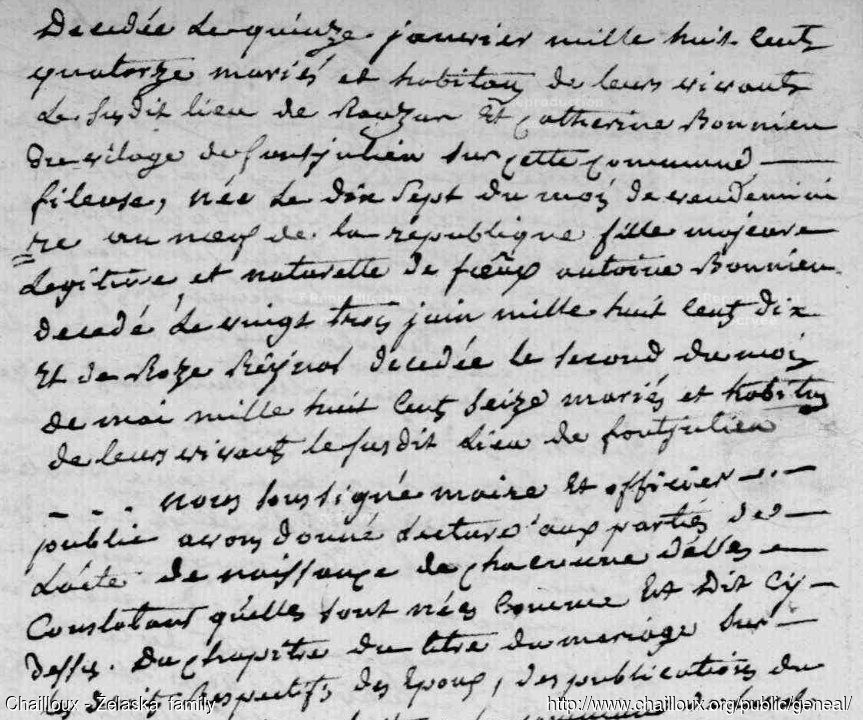 Decedée Le quinze janvier mille huit cent
quatorze mariés et habitans de leurs vivants
Le susdit lieu de Et Catherine Bonnieu
Du vilage de fontjulien sur cette commune
fileuse, née Le dix sept du mois de vendemiai
re an neuf de la republique fille majeure
Legitime et naturelle de antoine Bonnieu
decedé Le vingt trois juin mille huit cent dix
Et de Roze decedée le second du mois
de mai mille huit cent seize mariés et
de leurs vivants le susdit Lieu de fontjulien
nous soussigné maire Et officier
public avons donné Lecture aux parties de
L'acte de naissance de chacune d'elles
Constatant qu'elles sont nées Comme Est Dit Cy
dessus. Du chapitre du titre du mariage Sur
les droits Respectifs des Epoux, des publications du
Chailloux - Zelaska family
http://www.chailloux.org/public/geneal/